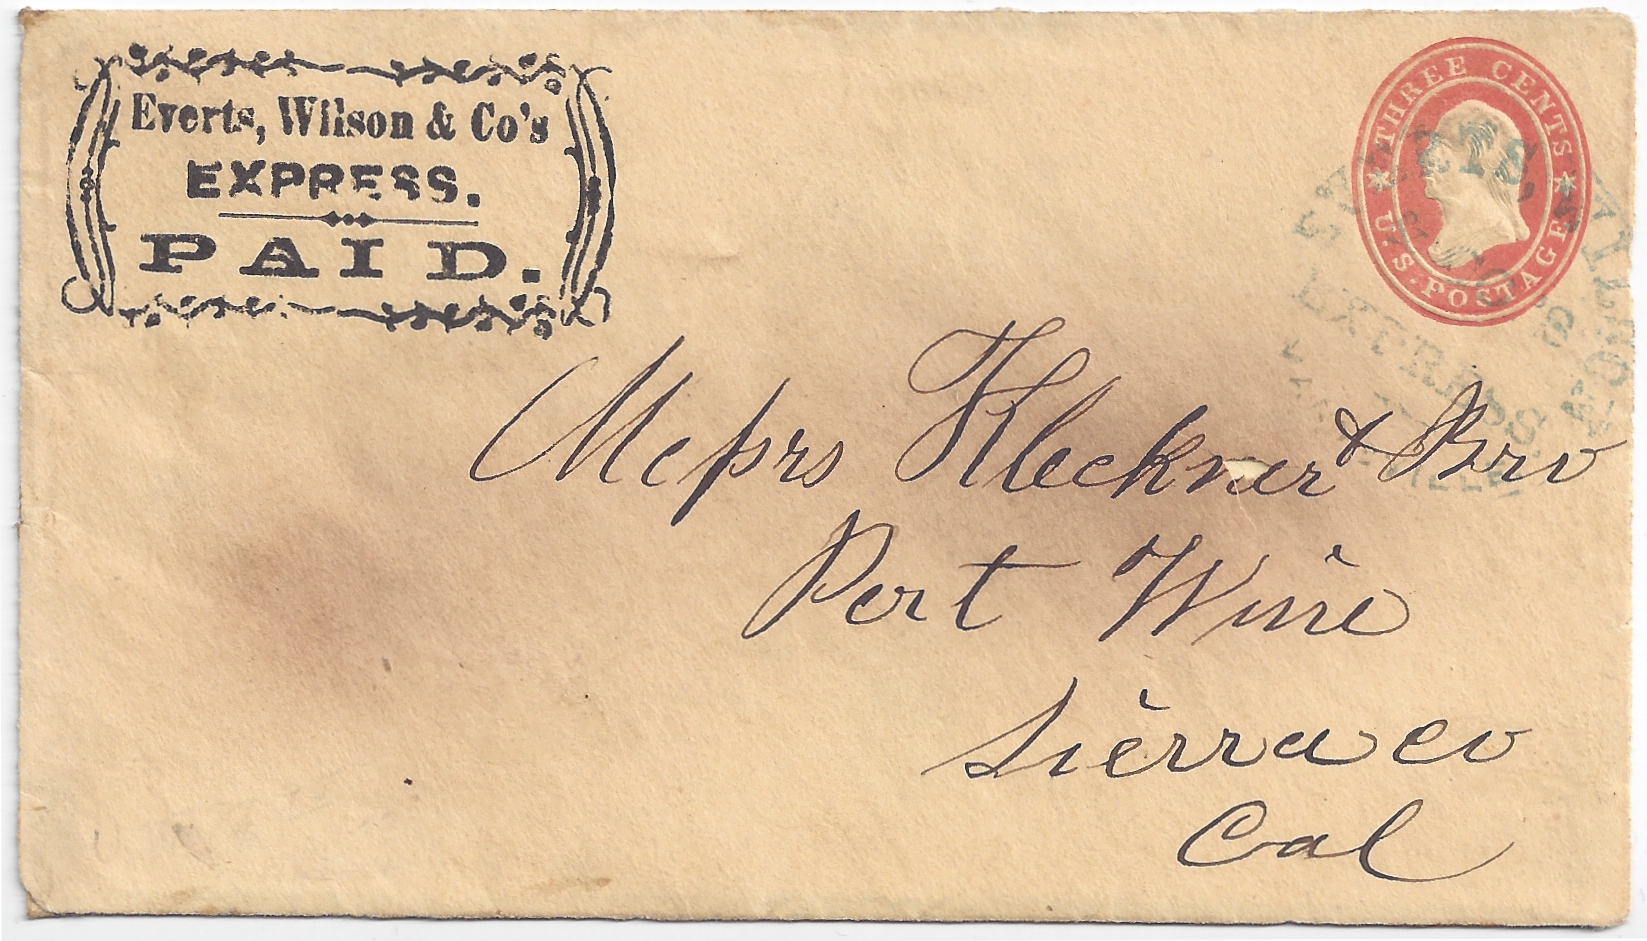 Everts, Wilson & Co's
EXPRESS.
PAID.
THREE CENTS
U.S. POSTAGE
EVERTS, WILSON &
CO'S
EXPRESS
Messrs Kleckner & Bro
Port Wine
Sierra co
Cal